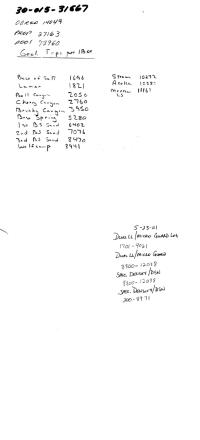 30-015-31667
OGRID 14049
PROP 27163
POOL 73960
Geol. Tops per
Base of Salt 1690
Lamar 1821
Bell Canyon 2050
Cherry Canyon 2760
Brushy Canyon 3950
Bone Spring 5280
1st BS Sand 6402
2nd BS Sand 7076
3rd BS Sand 8470
Wolfcamp 8941
Strawn 10292
Atoka
Morrow
LS
5-23-01
Dual LL/Micro Guard Log
1701-9021
Dual LL/Micro Guard
8900-12098
Spec. Density/DSN
8900-12098
Spec. Density/DSN
200-8971